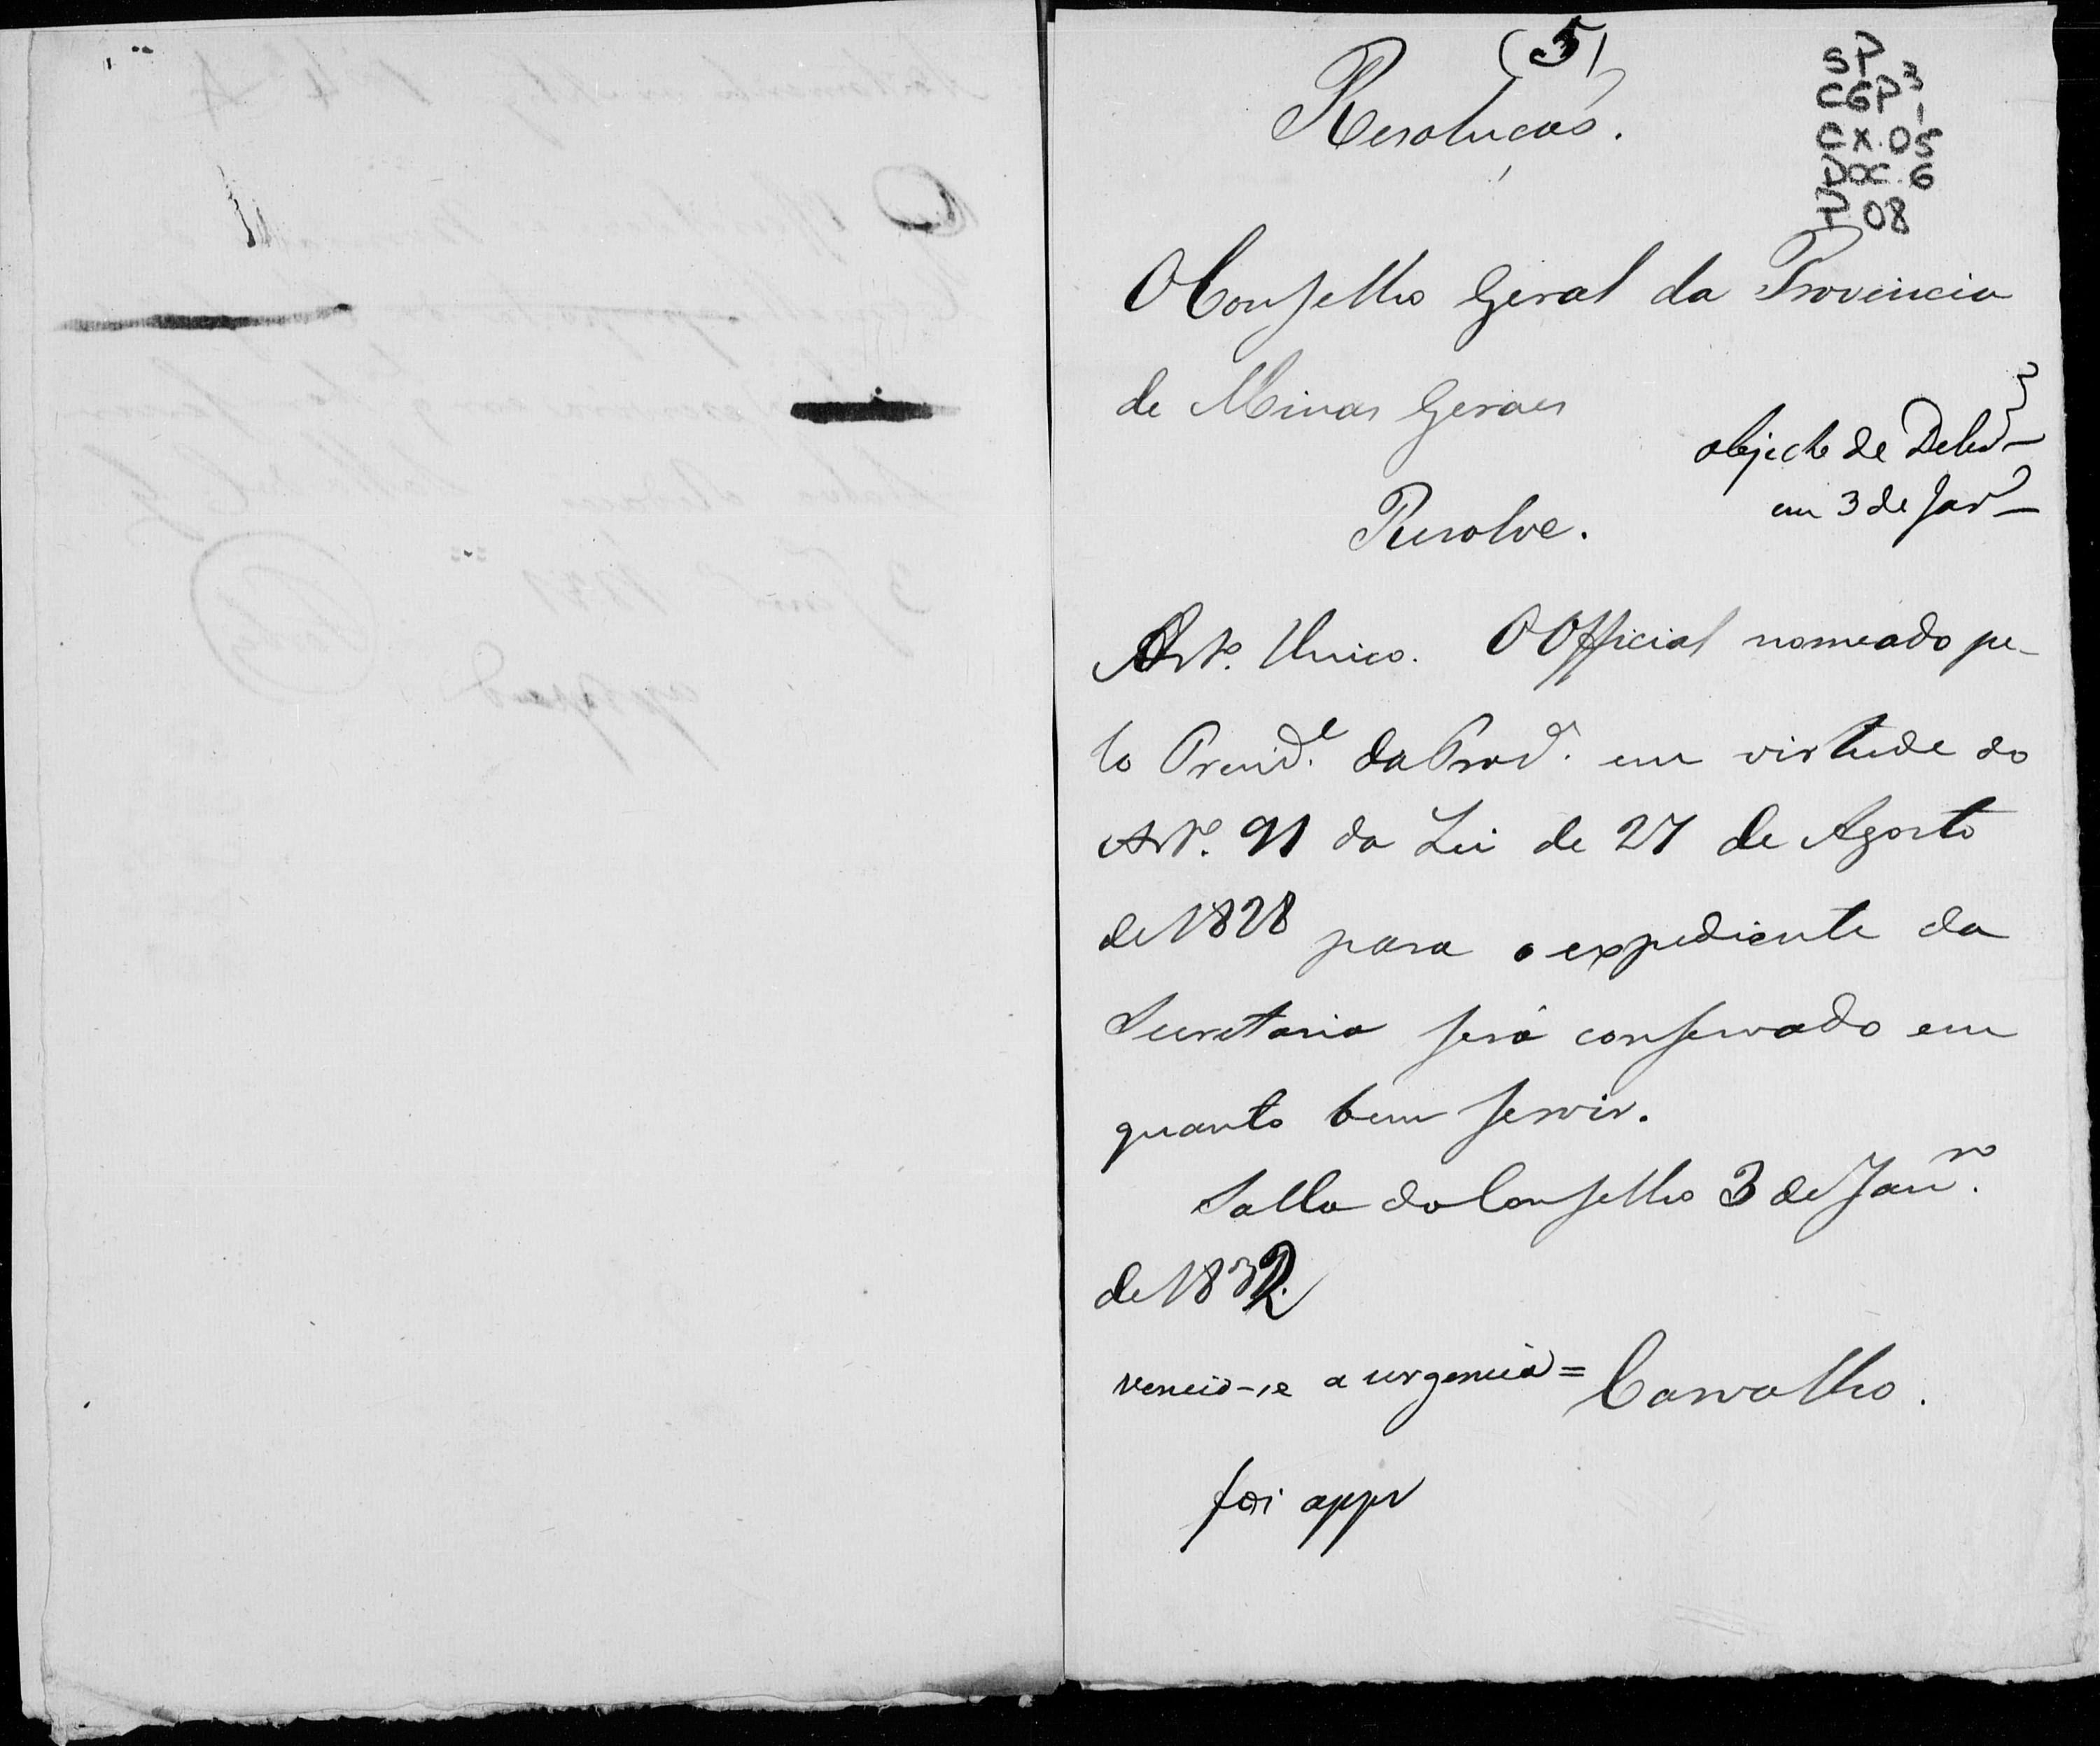 (5)
Resolucaõ.
SP
CGP 3
1
CX. 05
DOC. 6
P 08
O Conselho Geral da Provincia
de Minas Geraes
objecto de Delib
em 3 de Janr
Resolve.
Arto. Unico. O Official nomeado pe-
lo Preside. da Prova. em virtude do
Arto. 91 da Lei de 27 de Agosto
de 1828 para o expediente da
Secretaria será conservado em
quanto bem servir.
Salla do Conselho 3 de Janro.
de 1832.
venceo-se a urgencia = Carvalho.
foi appr